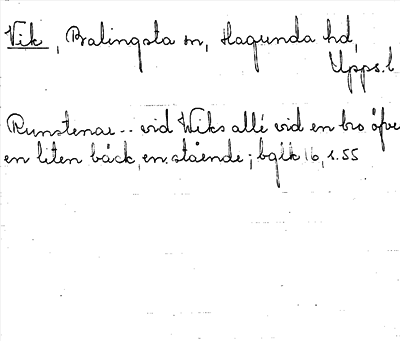 Vik, Balingsta sn, Hagunda hd,
Upps.l
Runstenar .. vid Wiks allé vid en bro öfver
en liten bäck, en stående; bglk 16, s. 55